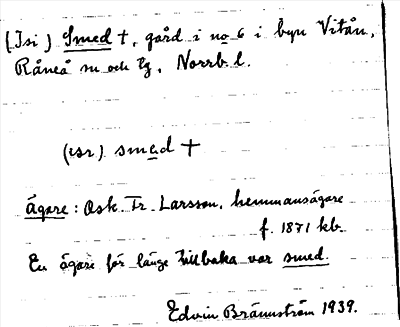 (Isi) Smed †, gård i no 6 i byn Vitån,
Råneå sn och tg, Norrb. l.
(ısr) smed †
Ägare: Osk. Fr. Larsson, hemmansägare
f. 1871 kb.
En ägare för länge tillbaka var smed.
Edvin Brännström 1939.